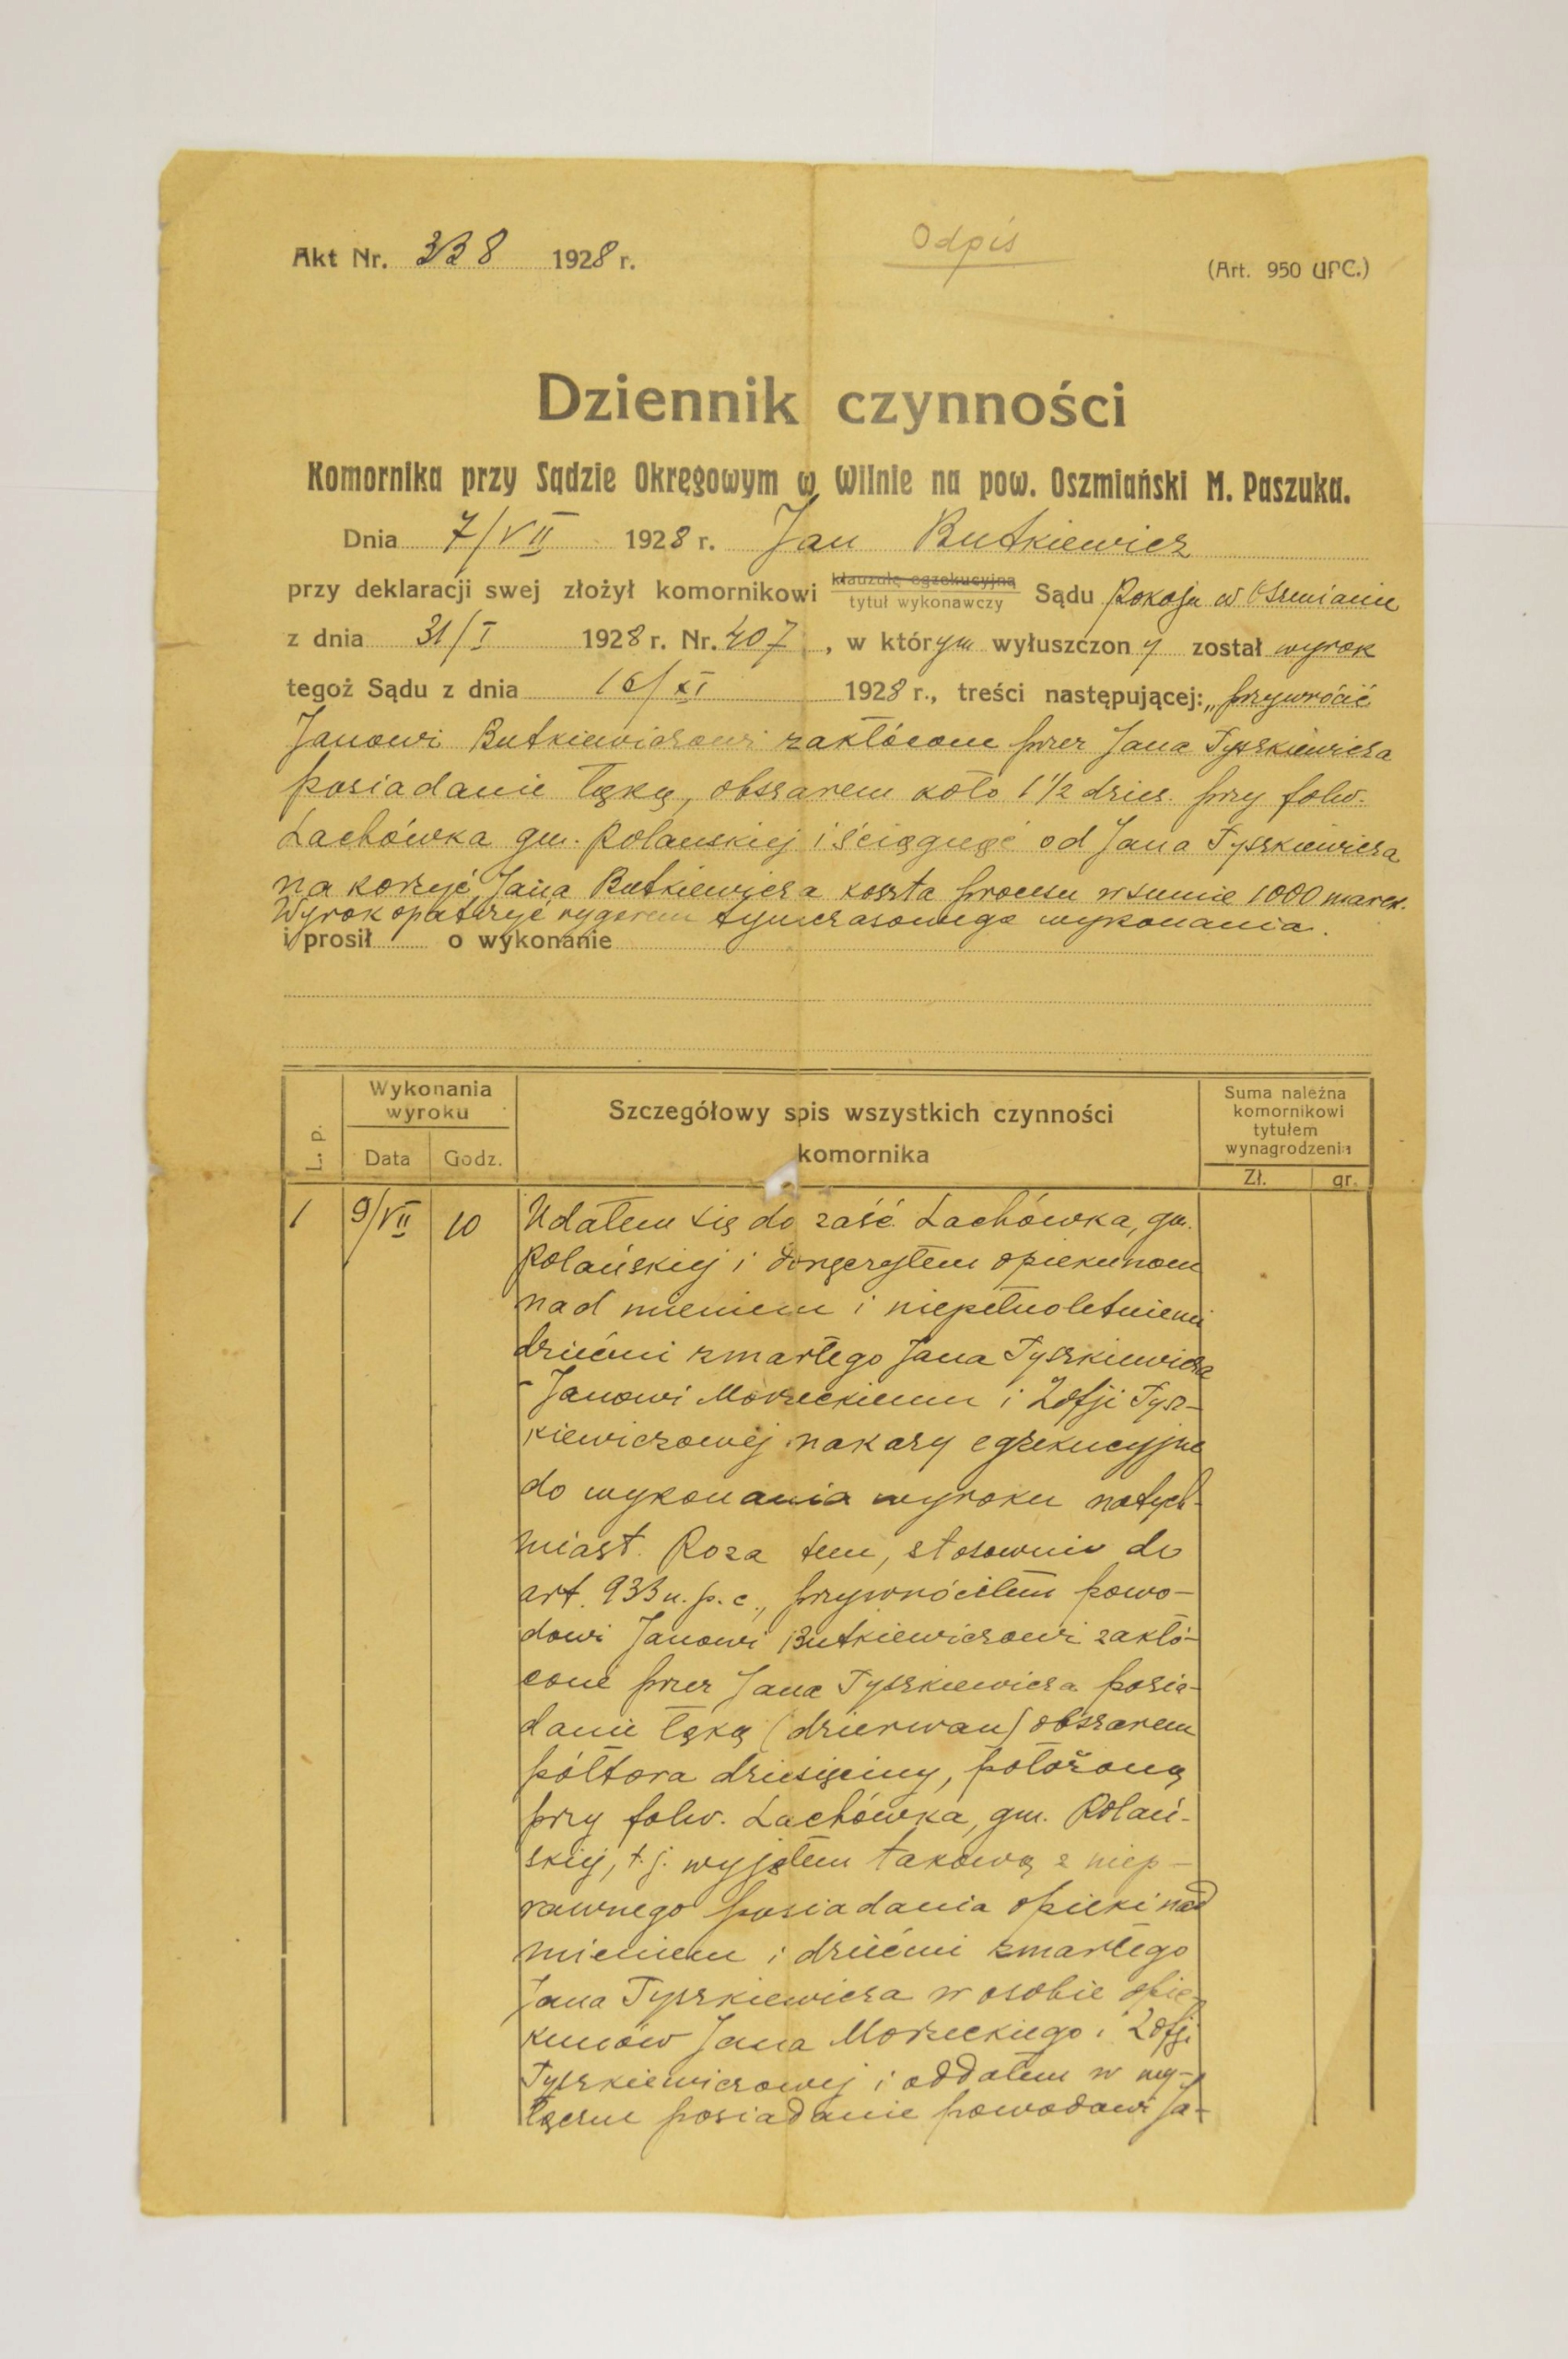 Akt Nr. 338 1928 r.
Odpis
(Art. 950 UPC.)
Dziennik czynności
Komornika przy Sądzie Okręgowym w Wilnie na pow. Oszmiański M. Paszuka.
Dnia 7/VII 1928 r. Jan Butkiewicz
przy deklaracji swej złożył komornikowi klauzulę egzekucyjną
tytuł wykonawczy Sądu Pokoju w Oszmianie
z dnia 31/I 1928 r. Nr. 407, w którym wyłuszczony został wyrok
tegoż Sądu z dnia 16/XI 1928 r., treści następującej: „przywrócić
Janowi Butkiewiczowi zakłócone przez Jana Tyszkiewicza
posiadanie łąką, obszarem koło 1 1/2 dzies. przy folw.
Lachówka gm. Polanskiej i ściągnąć od Jana Tyszkiewicza
na korzyć Jana Butkiewicza koszta procesu w sumie 1000 marek.
Wyrok opatrzyć rygorem tymczasowego wykonania.
i prosił o wykonanie
L. P.
Wykonania
wyroku
Data Godz.
Szczegółowy spis wszystkich czynności
komornika
Suma należna
komornikowi
tytułem
wynagrodzenia
Zł. gr.
1 9/VII 10 Udałem się do zaść. Lachówka, gm.
Polańskiej i doręczyłem opiekunom
nad mieniem i niepełnoletniemi
dziećmi zmarłego Jana Tyszkiewicza
- Janowi Morzeckiemu i Zofji Tysz-
kiewiczowej nakazy egzekucyjne
do wykonania wyroku natych-
miast. Poza tem, stosownie do
art. 933 u. p. c., przywróciłem powo-
dowi Janowi Butkiewiczowi zakłó-
cone przez Jana Tyszkiewicza posia-
danie łąką (dzierwan) obszarem
półtora dziesięciny, położoną
przy folw. Lachówka, gm. Polań-
skiej, t. j. wyjąłem takową z niep-
rawnego posiadania opieki nad
mieniem i dziećmi zmarłego
Jana Tyszkiewicza w osobie opie-
kunów Jana Morzeckiego i Zofji
Tyszkiewiczowej i oddałem w wy-
łączne posiadanie powodowi Ja-